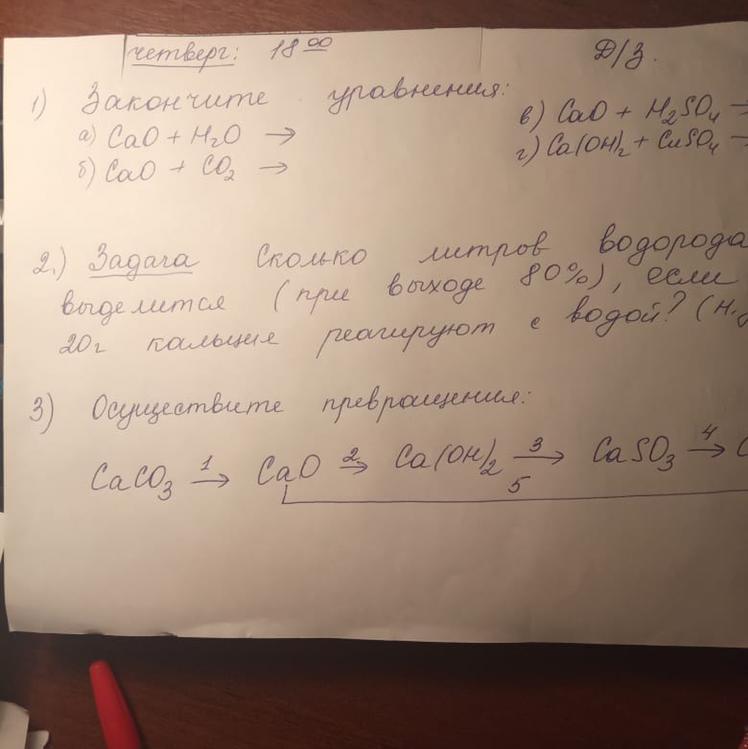 четверг: 18 00 Д/З.
1) Закончите уравнения:
а) CaO + H2O →
б) CaO + CO2 →
в) CaO + H2SO4 →
г) Ca(OH)2 + CuSO4 →
2.) Задача Сколько литров водорода
выделится (при выходе 80%), если
20г кальция реагируют с водой? (н.у
3) Осуществите превращения:
CaCO3 1→ CaO 2→ Ca(OH)2 3→ CaSO3 4→ C
5